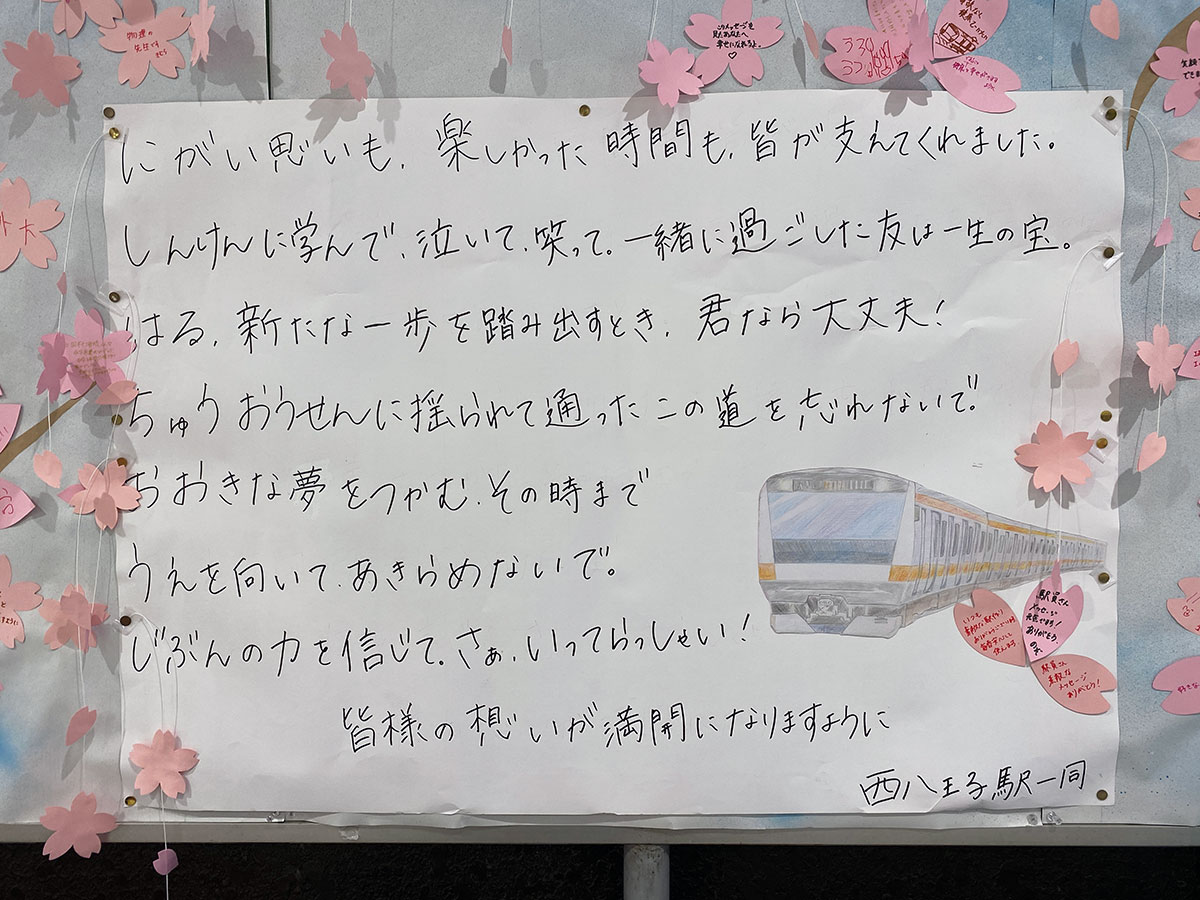 にがい思いも、楽しかった時間も、皆が支えてくれました。
しんけんに学んで、泣いて、笑って。一緒に過ごした友は一生の宝。
はる、新たな一歩を踏み出すとき、君なら大丈夫!
ちゅうおうせんに揺られて通ったこの道を忘れないで。
おおきな夢をつかむ、その時まで
うえを向いて、あきらめないで。
じぶんの力を信じて。さぁ、いってらっしゃい!
皆様の想いが満開になりますように
西八王子駅一同
物理の
先生です
このメッセージを
見たあなたへ
幸せになれるよ。♡
駅員さん
素敵な
メッセージ
ありがとう!
駅員さん
メッセージ
ありがとう。